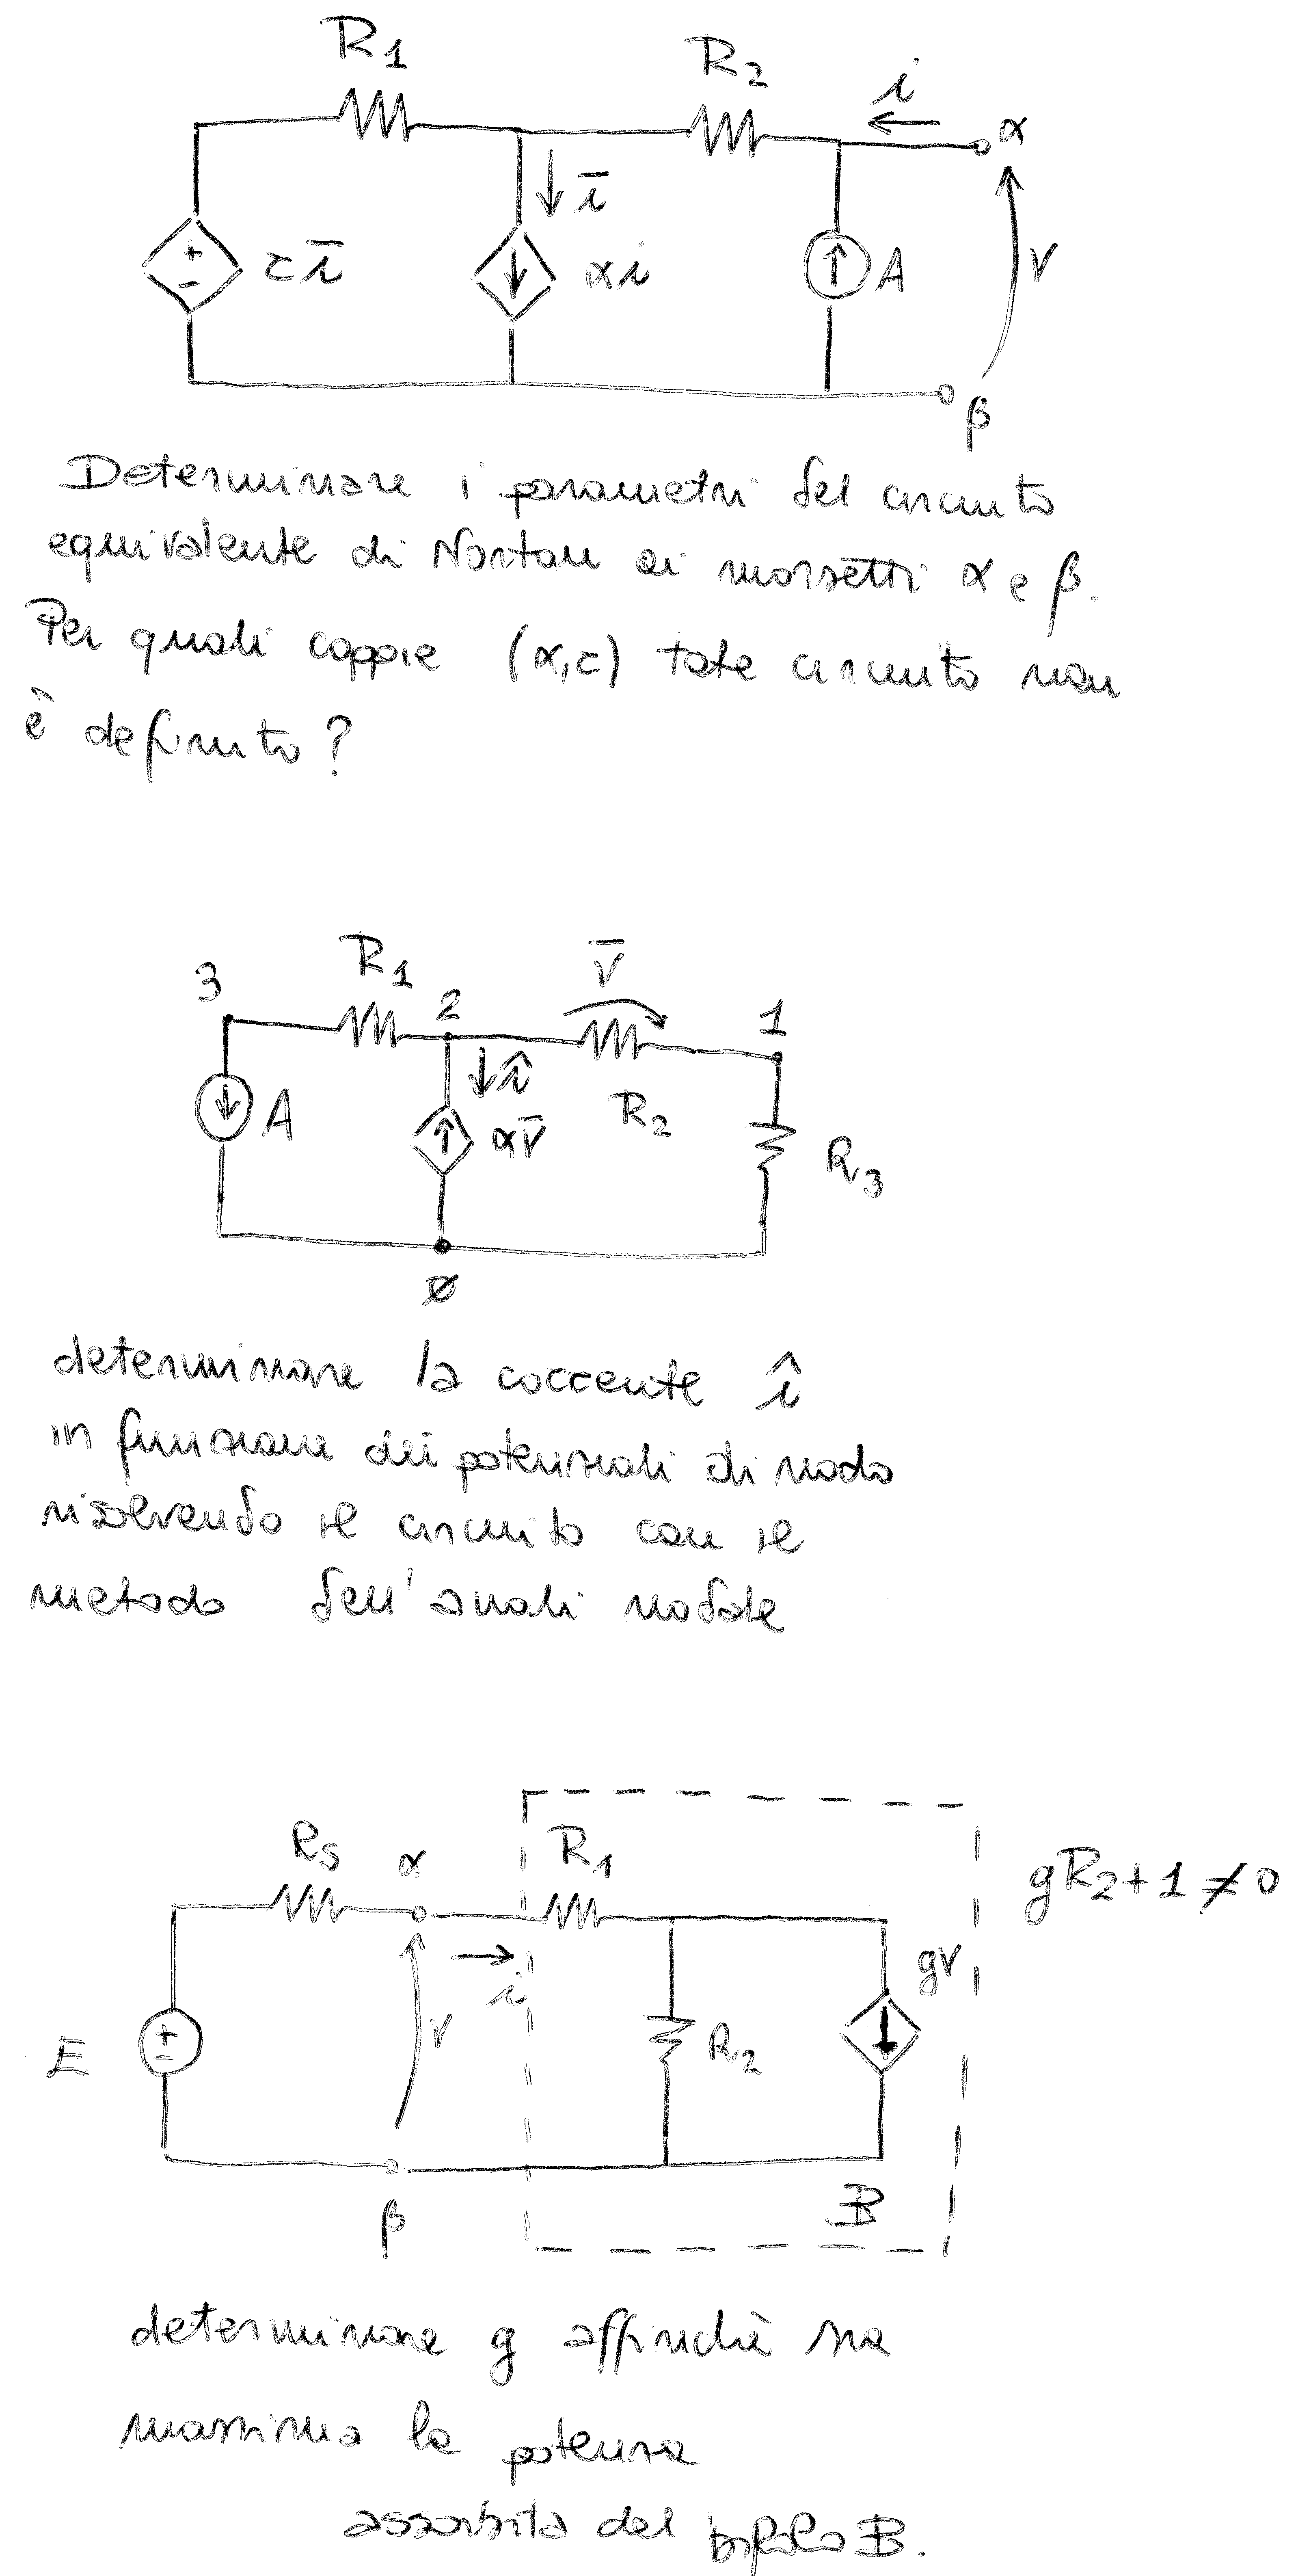 R1
R2
i
α
ī
+
-
cī
αi
A
V
β
Determinare i parametri del circuito
equivalente di Norton ai morsetti α e β.
Per quali coppie (α,c) tale circuito non
è definito?
V̄
R1
3
2
1
î
A
αV̄
R2
R3
∅
determinare la corrente î
in funzione dei potenziali di nodo
risolvendo il circuito con il
metodo dell'analisi nodale
RS
α
R1
gR2+1≠0
gV
i
V
+
-
E
R2
B
β
determinare g affinché sia
massima la potenza
assorbita dal bipolo B.